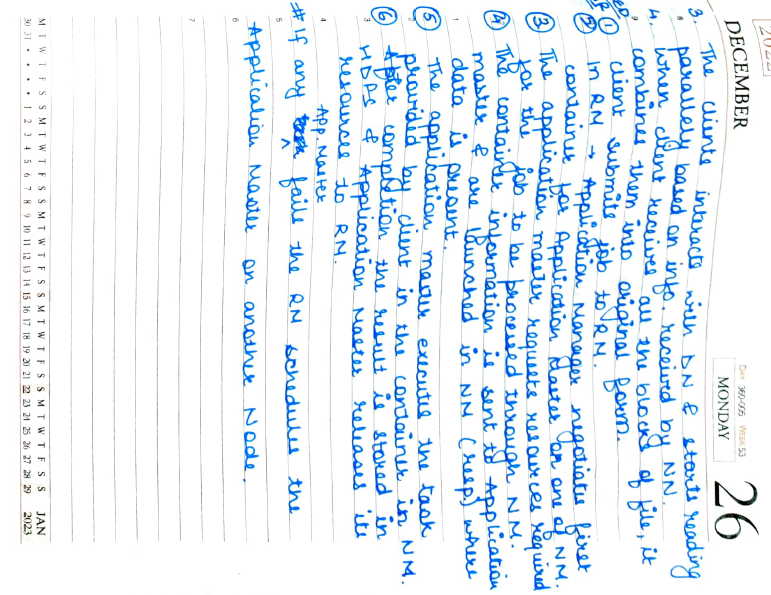 2022
DECEMBER
DAY 360-005 WEEK 53
MONDAY
26
3. The clients interacts with DN & starts reading
parallely based on info. received by NN.
4. When client receives all the blocks of file, it
combines them into original form.
① client submits job to RM.
② In RM → Application Manager negotiates first
container for Application Master on one of NM.
③ The application master requests resources required
for the job to be processed through NM.
④ The container information is sent to Application
master & are launched in NM (resp.) where
data is present.
⑤ The application master executes the task
provided by client in the container in NM.
⑥ After completion the result is stored in
HDFS & Application Master releases its
resources to RM.
App. Master
# If any fails the RM schedules the
Application Master on another Node.
8
9
1
2
3
4
5
6
7
M T W T F S S M T W T F S S M T W T F S S M T W T F S S M T W T F S S JAN
30 31 • • • • 1 2 3 4 5 6 7 8 9 10 11 12 13 14 15 16 17 18 19 20 21 22 23 24 25 26 27 28 29 2023